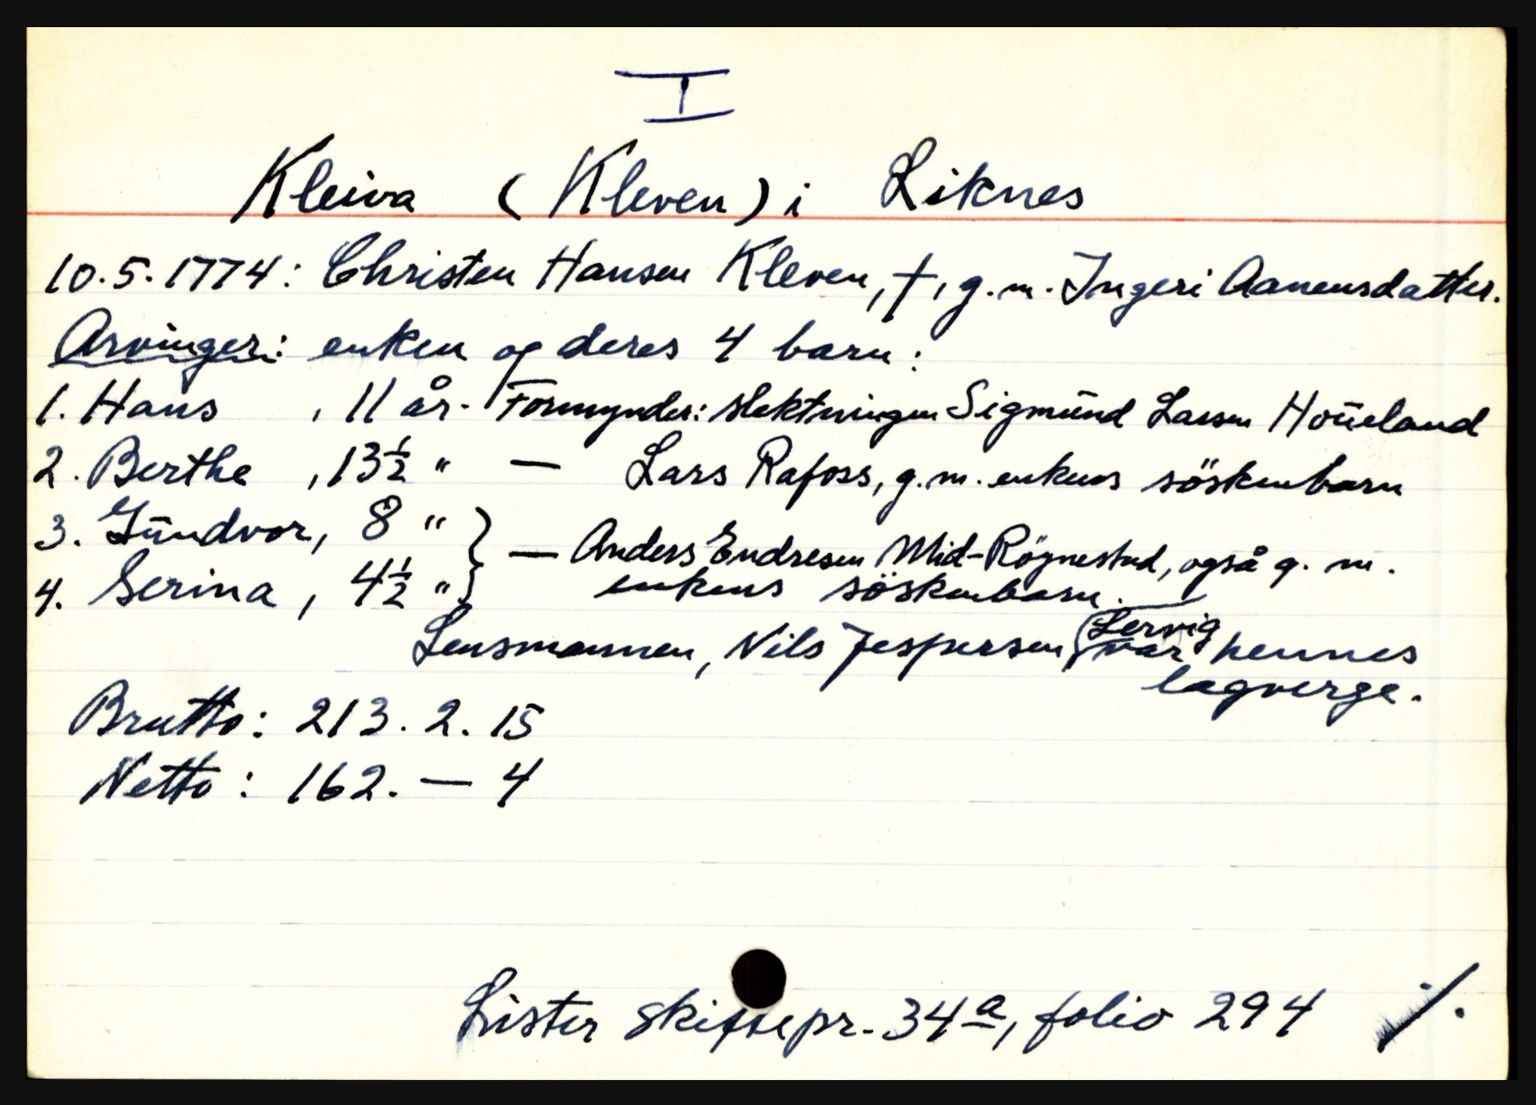 I
Kleiva (Kleven) i Liknes
10.5.1774: Christen Hansen Kleven, †, g.m. Ingeri Aanensdatter.
Arvinger: enken og deres 4 barn:
1. Hans , 11 år. Formynder: slektningen Sigmund Larsen Houeland
2. Berthe , 13½ " — Lars Rafoss, g.m. enkens söskenbarn
3. Gundvor, 8 " } — Anders Endresen Mid-Rögnestad, også g. m.
4. Serina , 4½ " } enkens söskenbarn.
Lensmannen, Nils Jespersen (Lervig) var hennes
lagverge.
Brutto: 213. 2. 15
Netto: 162. — 4
Lister skiftepr. 34a, folio 294 ./.